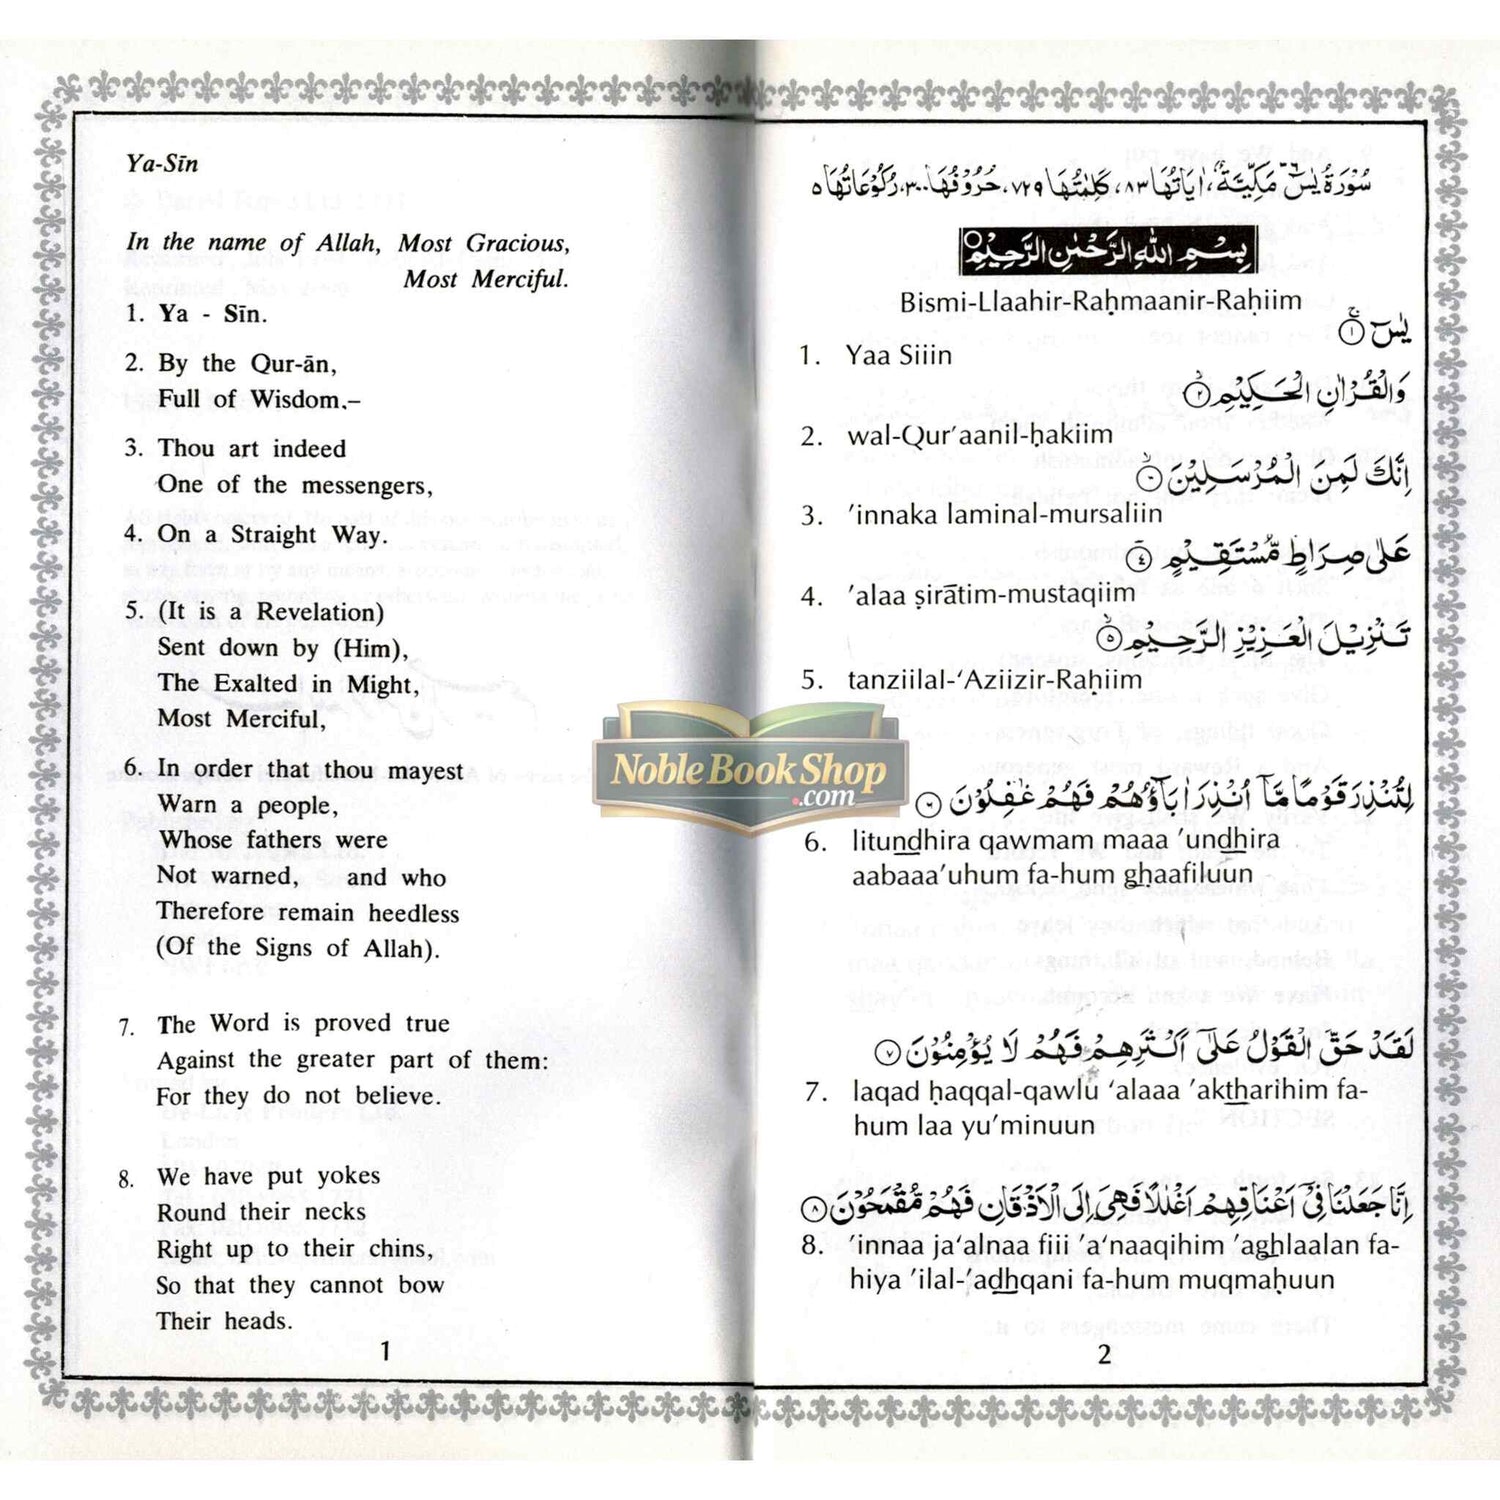 Ya-Sīn
In the name of Allah, Most Gracious,
Most Merciful.
1. Ya - Sīn.
2. By the Qur-ān,
Full of Wisdom,–
3. Thou art indeed
One of the messengers,
4. On a Straight Way.
5. (It is a Revelation)
Sent down by (Him),
The Exalted in Might,
Most Merciful,
6. In order that thou mayest
Warn a people,
Whose fathers were
Not warned, and who
Therefore remain heedless
(Of the Signs of Allah).
7. The Word is proved true
Against the greater part of them:
For they do not believe.
8. We have put yokes
Round their necks
Right up to their chins,
So that they cannot bow
Their heads.
1
سُوْرَةُ يٰسٓ مَكِّيَّةٌ، اٰيَاتُهَا ٨٣، كَلِمٰتُهَا ٧٢٩، حُرُوْفُهَا ٣٠٠٠، رُكُوْعَاتُهَا ٥
بِسْمِ اللّٰهِ الرَّحْمٰنِ الرَّحِيْمِ
Bismi-Llaahir-Raḥmaanir-Raḥiim
يٰسٓ ۝١
1. Yaa Siiin
وَالْقُرْاٰنِ الْحَكِيْمِ ۝٢
2. wal-Qur’aanil-ḥakiim
اِنَّكَ لَمِنَ الْمُرْسَلِيْنَ
3. ’innaka laminal-mursaliin
عَلٰى صِرَاطٍ مُّسْتَقِيْمٍ ۝٤
4. ’alaa ṣirātim-mustaqiim
تَنْزِيْلَ الْعَزِيْزِ الرَّحِيْمِ ۝٥
5. tanziilal-‘Aziizir-Raḥiim
لِتُنْذِرَ قَوْمًا مَّآ اُنْذِرَ اٰبَآؤُهُمْ فَهُمْ غٰفِلُوْنَ ۝٦
6. litundhira qawmam maaa ’undhira
aabaaa’uhum fa-hum ghaafiluun
لَقَدْ حَقَّ الْقَوْلُ عَلٰٓى اَكْثَرِهِمْ فَهُمْ لَا يُؤْمِنُوْنَ ۝٧
7. laqad ḥaqqal-qawlu ‘alaaa ’aktharihim fa-
hum laa yu’minuun
اِنَّا جَعَلْنَا فِيْٓ اَعْنَاقِهِمْ اَغْلٰلًا فَهِيَ اِلَى الْاَذْقَانِ فَهُمْ مُّقْمَحُوْنَ ۝٨
8. ’innaa ja‘alnaa fiii ’a‘naaqihim ’aghlaalan fa-
hiya ’ilal-’adhqani fa-hum muqmaḥuun
2
Noble Book Shop
.com